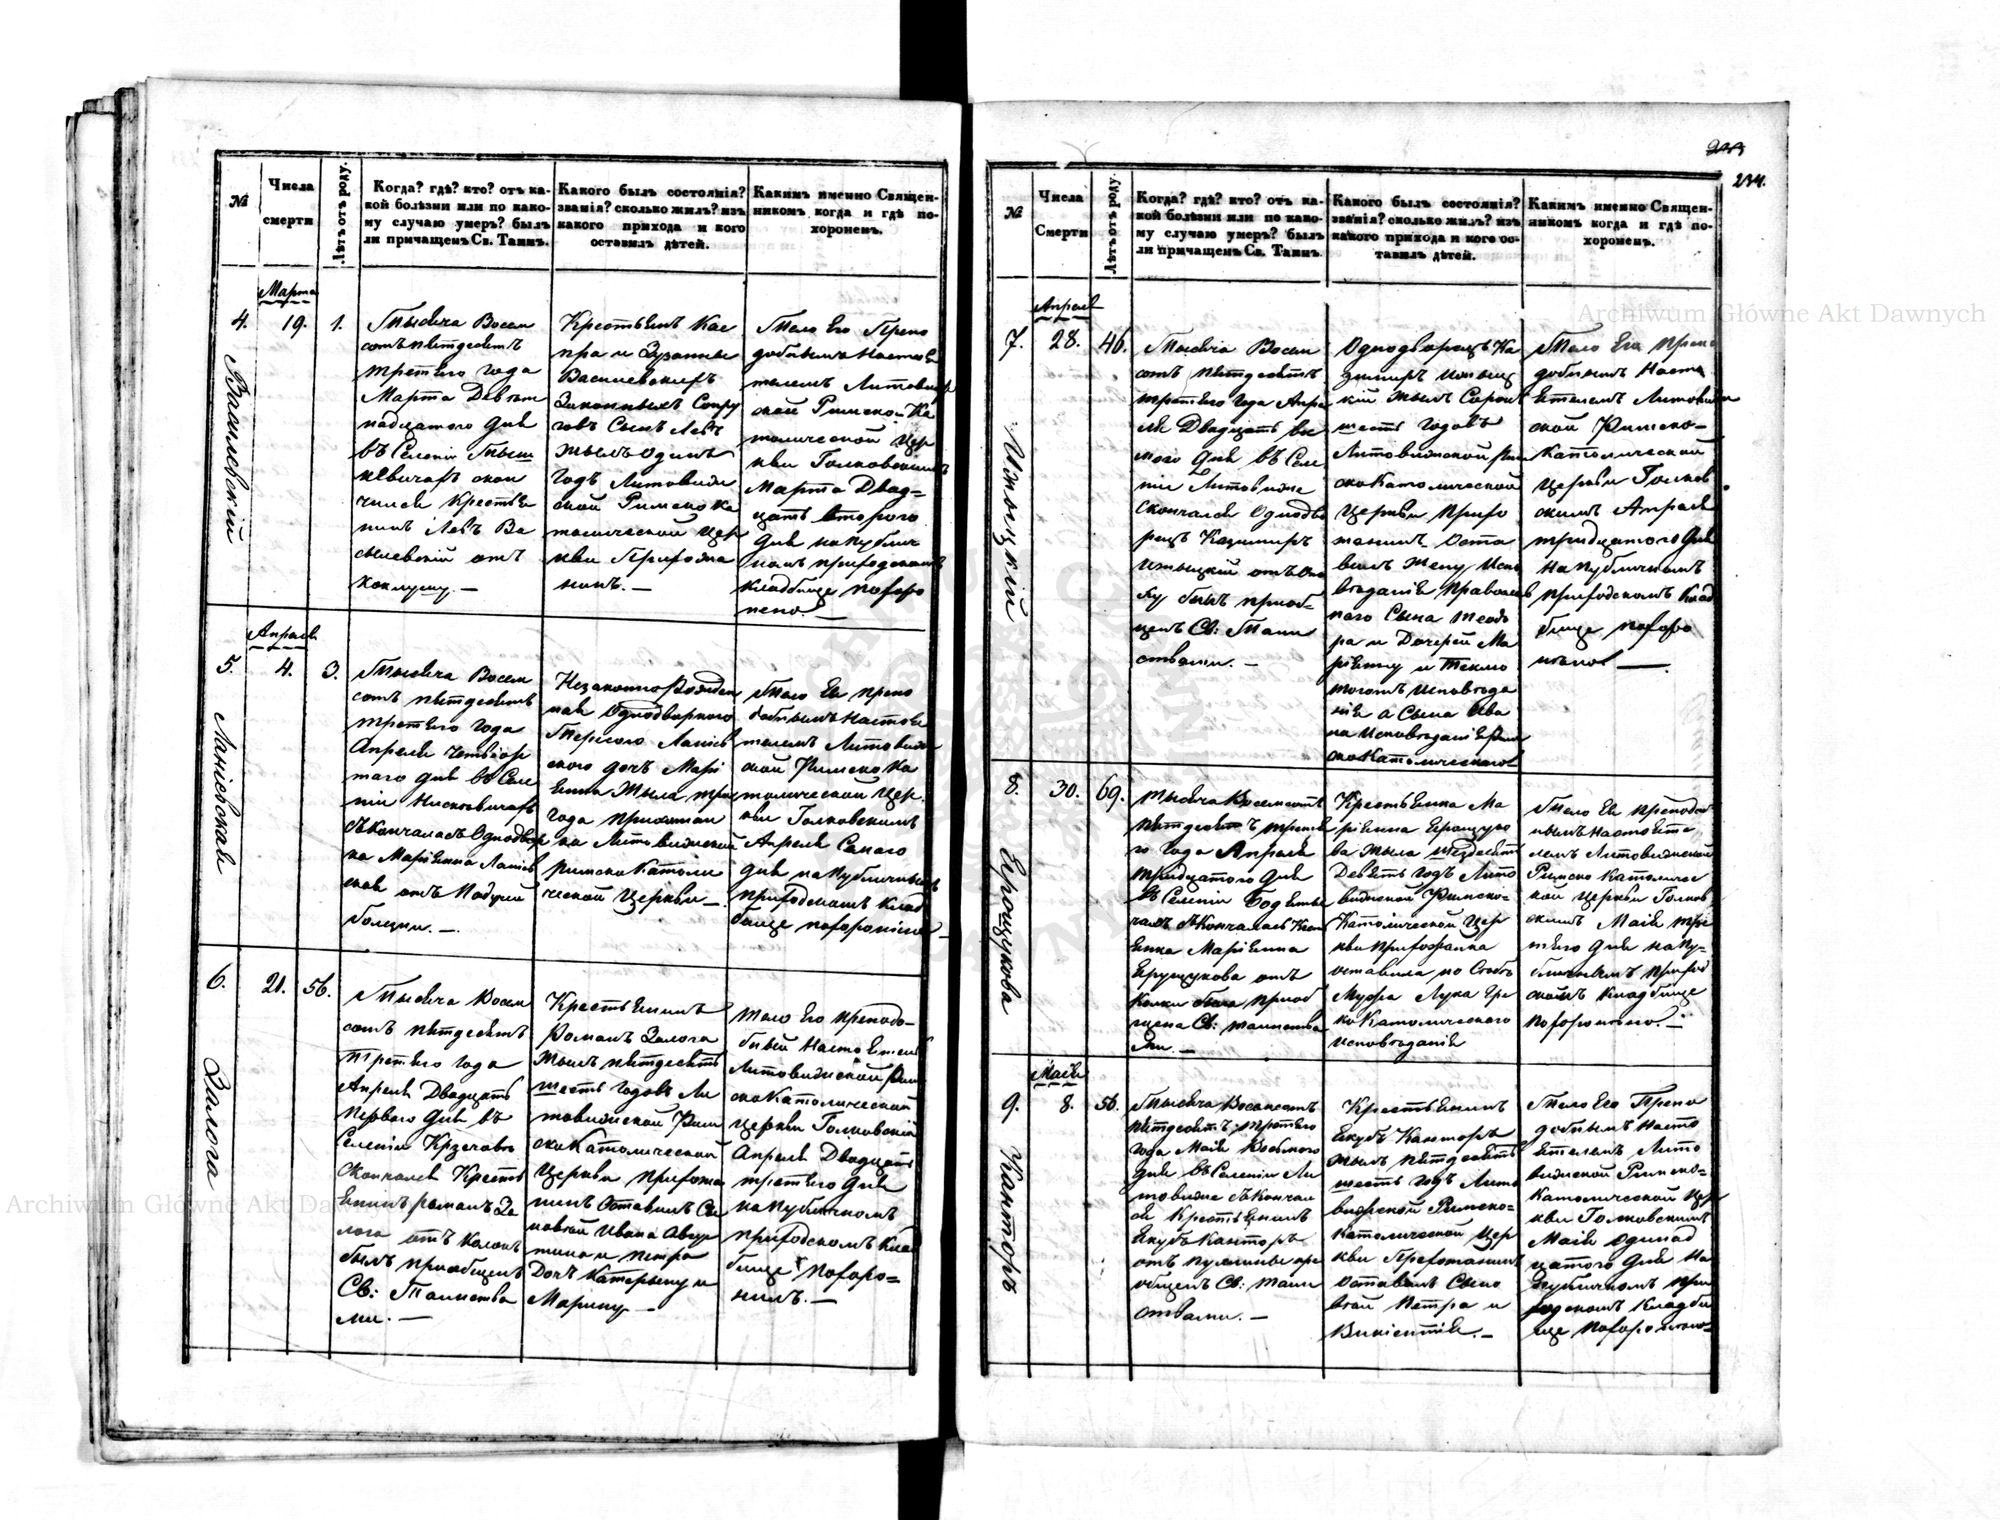 №
Числа
смерти
Лѣтъ отъ роду.
Когда? гдѣ? кто? отъ ка-
кой болѣзни или по како-
му случаю умеръ? былъ
ли причащенъ Св. Таинъ.
Какого былъ состоянія?
званія? сколько жилъ? изъ
какого прихода и кого
оставилъ дѣтей.
Какимъ именно Священ-
никомъ когда и гдѣ по-
хороненъ.
Марта
4.
19.
1.
Тысяча Восем
сотъ пятдесятъ
третьяго года
Марта Девят
надцатого дня
въ Селеніи
скон
чался Крестья
нинъ Левъ Ва
силевскій отъ
коклушу. —
Крестьянъ Кас
пра и Зузанны
Василевскихъ
Законныхъ Супру
говъ Сынъ Левъ
жылъ Одинъ
годъ Литовиж
ской Римско Ка
толической Цер
кви Прихожа
нинъ. —
Тело Его Препо
добнымъ Настоя
телемъ Литовиж
ской Римско Ка
толической Цер
кви Голковскимъ
Марта Двад-
цать Второго
дня на публич
номъ приходскомъ
Кладбище похоро
нено. —
Василевскій
Апреля
5.
4.
3.
Тысяча Восем
сотъ пятдесятъ
третьяго года
Апреля Четвіор
таго дня въ Селе
ніи
Скончалась Однодвор
ка Маріянна
отъ Падучей
болезни. —
Незаконно Рожден
ная Однодворкою
дочъ Марі
янна Жыла три
года прихожан
ка Литовижской
римско Католи
ческой Церкви —
Тело Ея препо
добнымъ Настоя
телемъ Литовиж
ской Римско Ка
толической Цер
кви Голковскимъ
Апреля Самаго
дня на публичномъ
приходскомъ Клад
бище похоронено —
6.
21.
56.
Тысяча Восем
сотъ пятдесятъ
третьяго года
Апреля Двадцать
первого дня въ
Селеніи
Скончался Кресть
янинъ Романъ За
лога отъ Колокъ
былъ приобщенъ
Св: Таинства
ми. —
Крестьянинъ
Романъ Залога
Жылъ пятдесятъ
шесть годовъ Ли
товижской Рим
ско Католической
Церкви прихожа
нинъ Оставилъ Сы
новей Ивана Авгус
тина и петра
Доч Катерыну и
Марину —
тело Его преподо-
бный Настоятель
Литовижской Рим
ско Католической
Церкви Голковскій
Апреля Двадцать
третьяго дня
на публичномъ
приходскомъ Клад
бище похоро=
нилъ. —
Залога
234.
№
Числа
Смерти
Лѣтъ отъ роду.
Когда? гдѣ? кто? отъ ка-
кой болѣзни или по како-
му случаю умеръ? былъ
ли причащенъ Св. Таинъ.
Какого былъ состоянія?
званія? сколько жилъ? изъ
какого прихода и кого ос-
тавилъ дѣтей.
Какимъ именно Священ-
никомъ когда и гдѣ по-
хороненъ.
Апреля
7.
28.
46.
Тысяча Восем
сотъ пятдесятъ
третьяго года Апре
ля Двадцать вос
мого дня въ Селе
ніи Литовиже
Скончался Однодво
рецъ Казимиръ
отъ
былъ приоб-
щенъ Св: Таин
ствами. —
Однодворецъ Ка
зимиръ
жылъ Сорокъ
шесть годовъ
Литовижской рим
ско Католической
Церкви Прихо
жанинъ Оста
вилъ жену Испо
ведания Православ
ного Сына Теодо
ра и Дочерей Ма
ріянну и Теклю
тогожъ исповеда
нія а Сына Ива
на Исповеданія Рим
ско Католического
Тело Его Препо
добнымъ Насто
ятелемъ Литовижс
ской Римско-
Католической
Церкви Голков
скимъ Апреля
тридцатого дня
на публичномъ
приходскомъ Клад
бище похоро
нено —
8.
30.
69.
Тысяча Восемсотъ
пятдесятъ третья
го года Апреля
тридцатого дня
въ Селеніи
Скончалась Кресть
янка Маріянна
Ерощукова отъ
Колки была приоб
щена Св: таинства
ми. —
Крестьянка Ма
ріянна Ерощуко
ва жыла шездесятъ
Девять годъ Лито
вижской Римско-
Католической Цер
кви прихожанка
оставила по Себѣ
Мужа Лука Гре
ко Католического
исповеданія
Тело Ея преподоб
нымъ Настояте
лемъ Литовижской
Римско Католичес
кой Церкви Голков
скимъ Маія тре
тьяго дня на пу=
бличномъ приход
скомъ кладбище
похоронено. —
Ерощукова
Маія
9.
8.
56.
Тысяча Восемсотъ
пятдесятъ третьяго
года Маія Восьмого
дня въ Селеніи Ли
товиже Скончал
ся Крестьянинъ
Якубъ Канторъ
отъ
общенъ Св: таин
ствами. —
Крестьянинъ
Якубъ Канторъ
жылъ пятдесятъ
шесть годъ Лито
вижской Римско-
Католической Цер
кви Прихожанинъ
Оставилъ Сыно
вей Петра и
Викентія. —
Тело Его Препо
добнымъ Насто
ятелемъ Лито
вижской Римско=
Католической Цер
кви Голковскимъ
Маія Одинад
цатого дня На
публичномъ при
ходскомъ Кладби
ще похоронено-
Канторъ
Archiwum Główne Akt Dawnych
Archiwum Główne Akt Dawnych